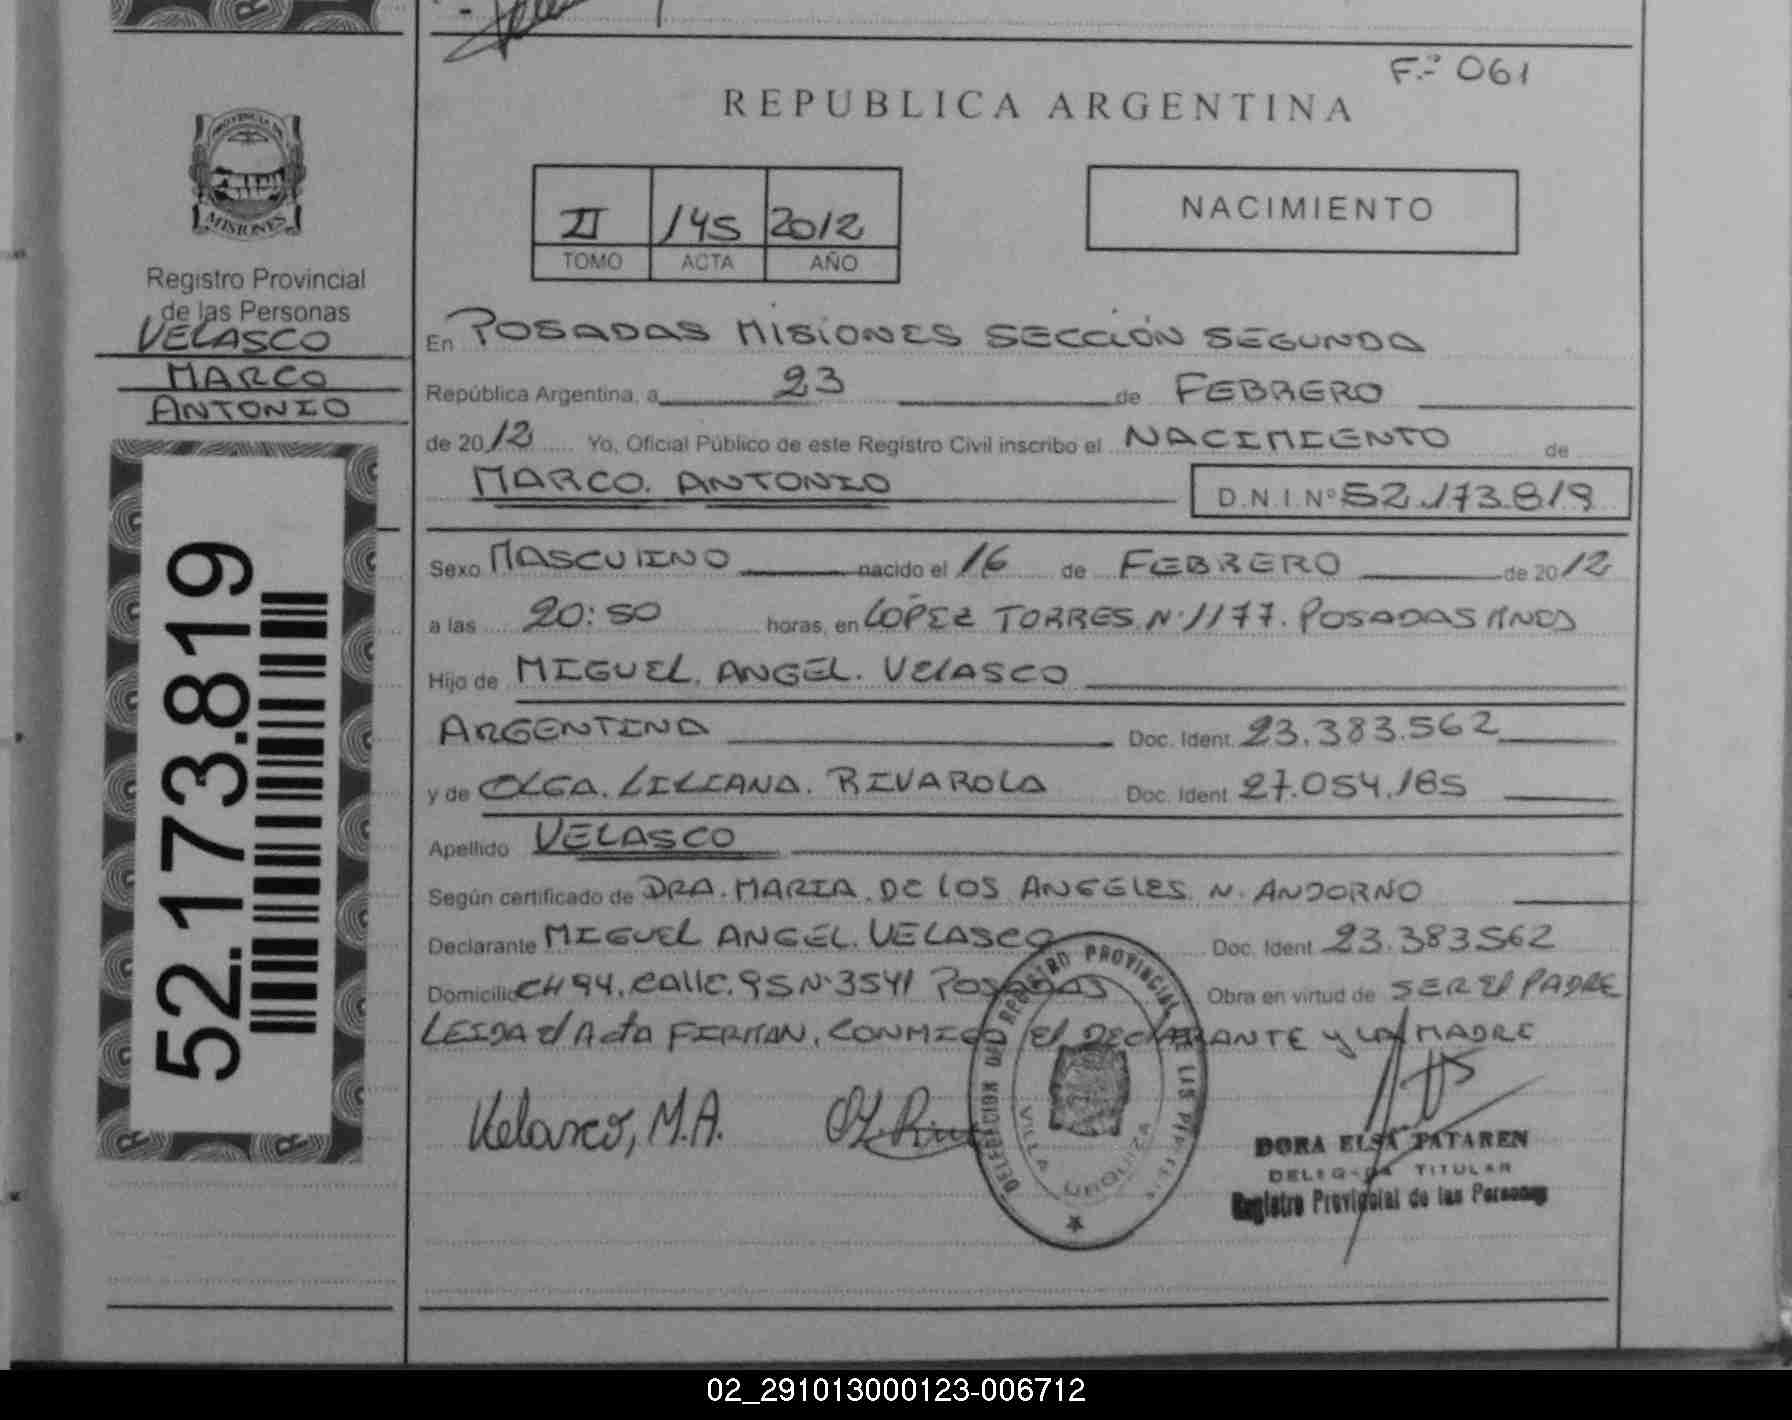 F.º 061
REPUBLICA ARGENTINA
PROVINCIA DE
MISIONES
II 145 2012
TOMO ACTA AÑO
NACIMIENTO
Registro Provincial
de las Personas
VELASCO
MARCO
ANTONIO
52.173.819
En POSADAS MISIONES SECCIÓN SEGUNDA
República Argentina, a 23 de FEBRERO
de 2012 Yo, Oficial Público de este Registro Civil inscribo el NACIMIENTO de
MARCO. ANTONIO D.N.I.Nº 52.173.819
Sexo MASCULINO nacido el 16 de FEBRERO de 2012
a las 20:50 horas, en LOPEZ TORRES N·1177. POSADAS MNES
Hijo de MIGUEL. ANGEL. VELASCO
ARGENTINA Doc. Ident. 23.383.562
y de OLGA. LILIANA. RIVAROLA Doc. Ident 27.054.185
Apellido VELASCO
Según certificado de DRA. MARIA. DE LOS ANGELES. N. ANDORNO
Declarante MIGUEL ANGEL. VELASCO Doc. Ident 23.383.562
Domicilio CH 94. Calle. 95 N·3541 POSADAS Obra en virtud de SER El PADRE
LEIDA el Acta FIRMAN, CONMIGO El DECLARANTE y LA MADRE
Velasco, M.A.
DELEGACION DEL REGISTRO PROVINCIAL DE LAS PERSONAS
VILLA URQUIZA
DORA ELSA TATAREN
DELEGADA TITULAR
Registro Provincial de las Personas
02_291013000123-006712